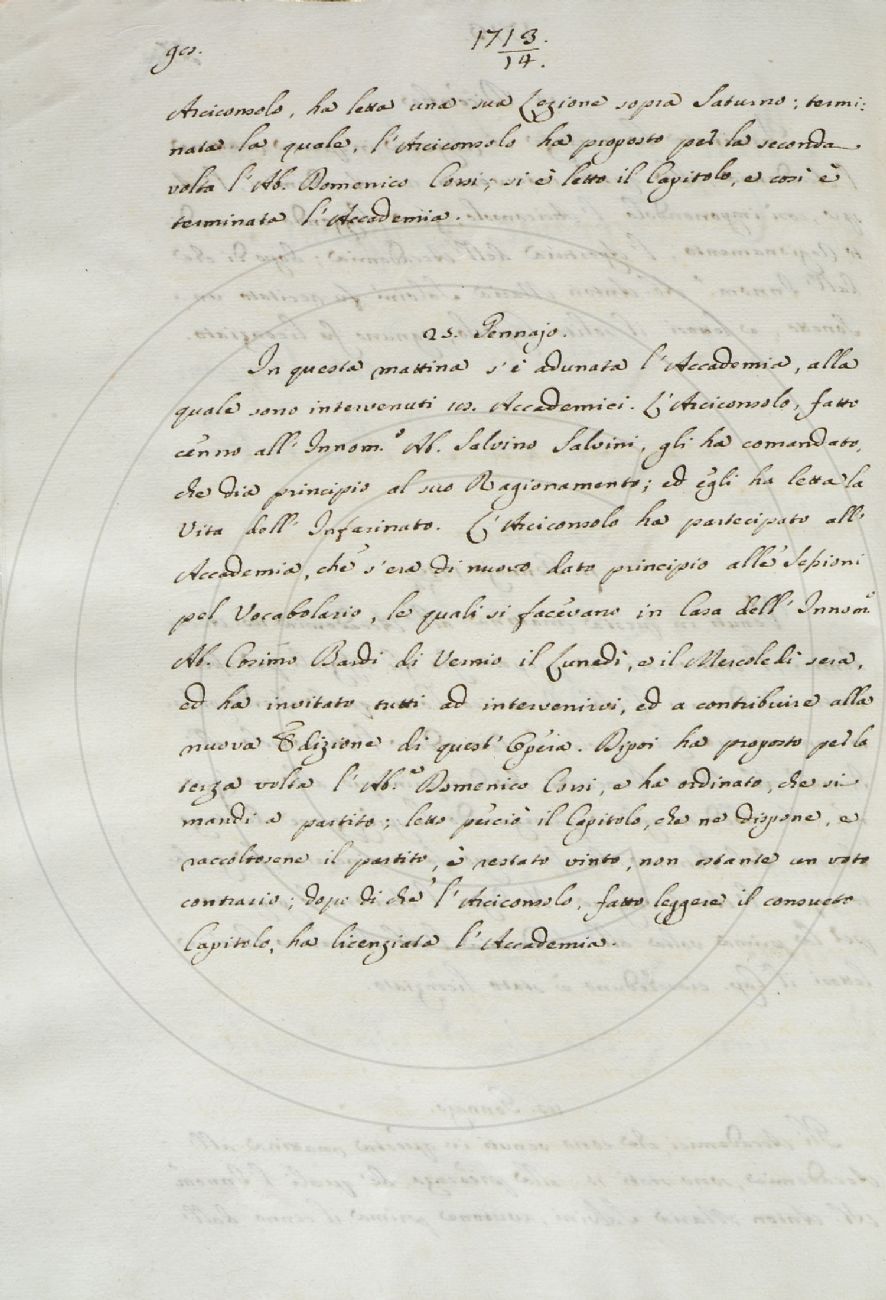 1713.
14.
Arciconsolo, ha letta una sua Lezione sopra Saturno; termi:
nata la quale, l'Arciconsolo ha proposto pel la seconda
volta l'Ab. Domenico Corsi; si è letto il Capitolo, e così è
terminata l'Accademia.
25. Gennajo.
In questa mattina s'è adunata l'Accademia, alla
quale sono intervenuti Accademici. L'Arciconsolo, fatto
cenno all'Innom.º Ab. Salvino Salvini, gli ha comandato,
che dia principio al suo Ragionamento; ed egli ha letta la
Vita dell'Infarinato. L'Arciconsolo ha partecipato all'
Accademia, che s'era di nuovo dato principio alle Sessioni
pel Vocabolario, le quali si facevano in Casa dell'Innom.º
Ab. Cosimo Bardi di Vernio il Lunedì, e il Mercoledì sera,
ed ha invitato tutti ad intervenirvi, ed a contribuire alla
nuova Edizione di quest'Opera. Dipoi ha proposto pel la
terza volta l'Ab.e Domenico Corsi, e ha ordinato, che si
mandi a partito; letto perciò il Capitolo, che ne dispone, e
raccoltosene il partito, è restato vinto, non ostante un voto
contrario; dopo di che l'Arciconsolo, fatto leggere il consueto
Capitolo, ha licenziata l'Accademia.